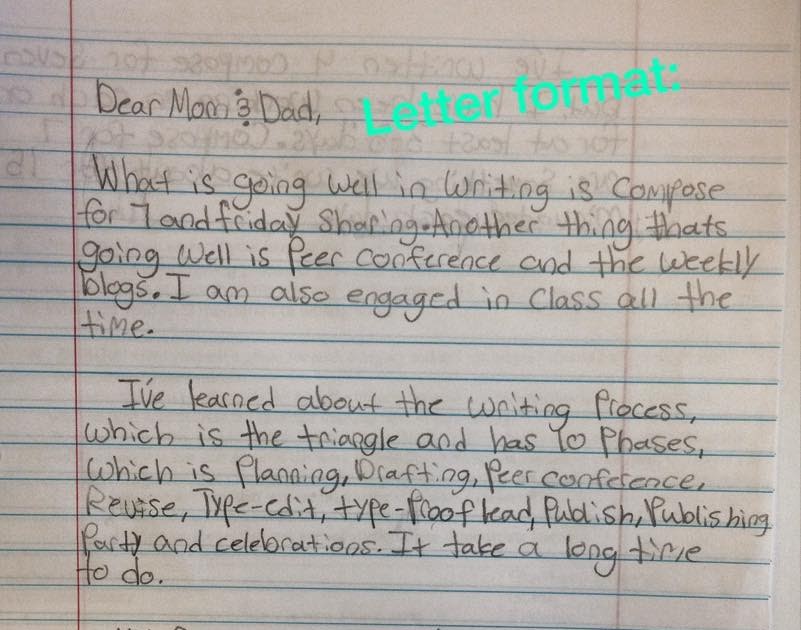 Dear Mom & Dad,
Letter format:
What is going well in writing is Compose
for 7 and friday Sharing. Another thing thats
going well is Peer conference and the weekly
blogs. I am also engaged in class all the
time.
I've learned about the writing Process,
which is the triangle and has 10 Phases,
which is Planning, Drafting, Peer conference,
Revise, Type-edit, type-Proof read, Publish, Publishing
Party and celebrations. It take a long time
to do.